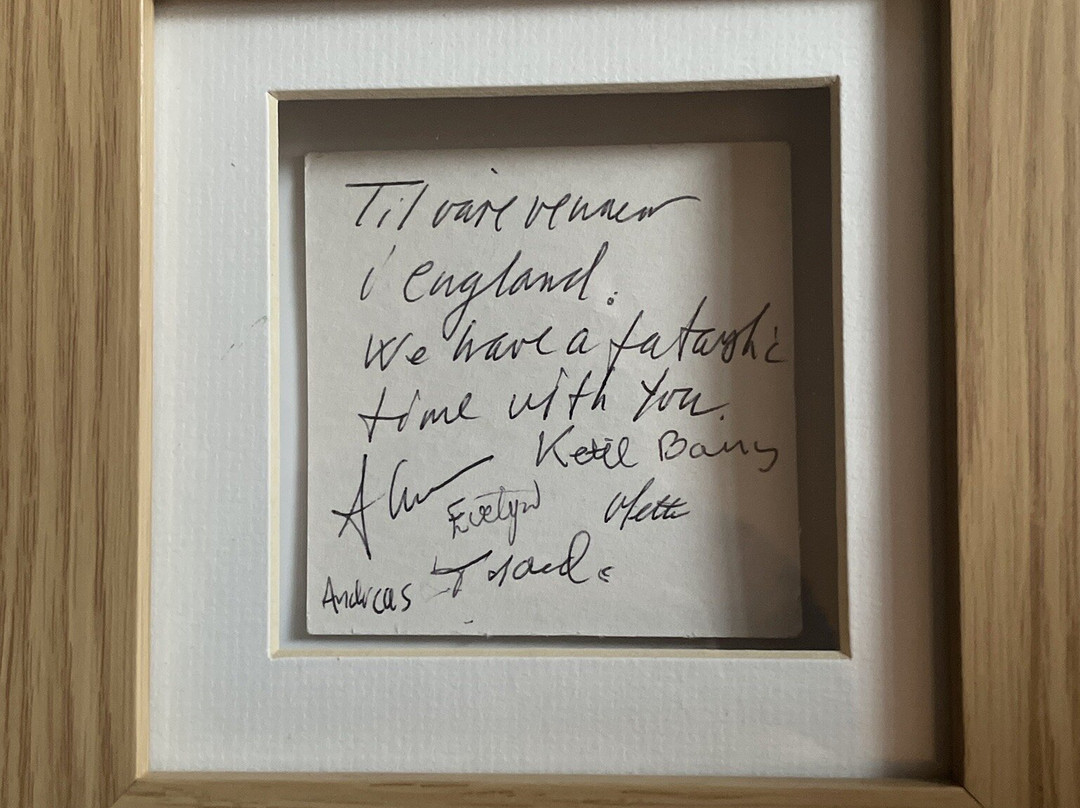 Til våre venner
i england.
We have a fatastic
time with you.
Ketil Barry
Evelyn Mette
Andreas